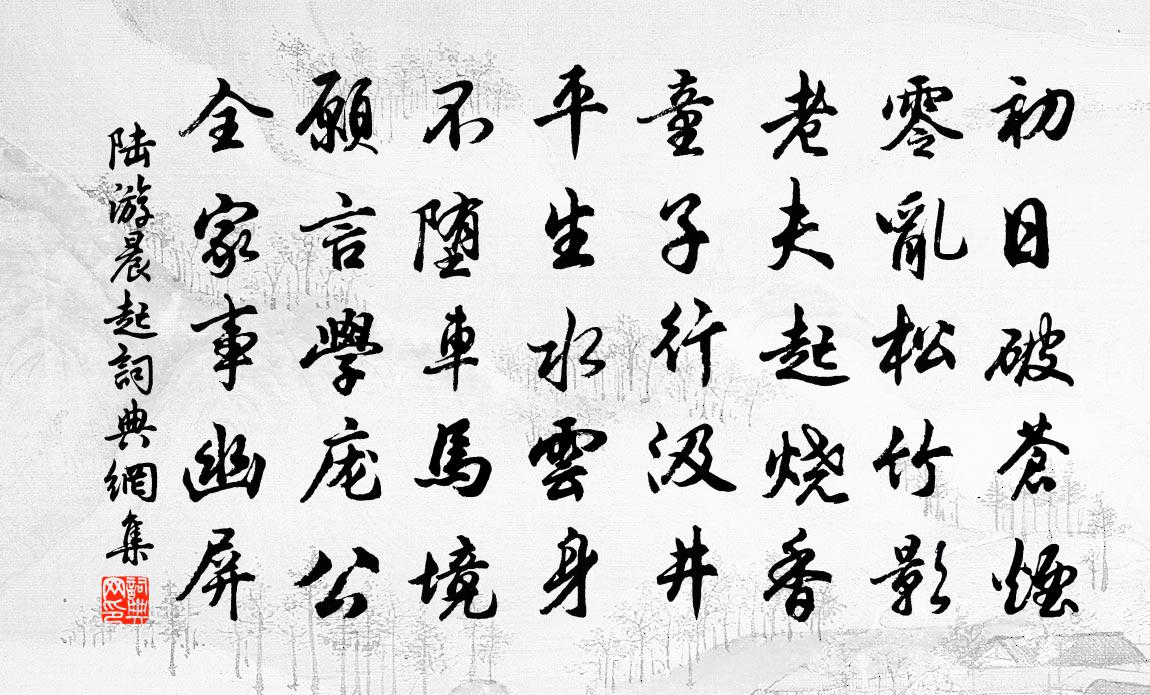 初日破蒼煙
零亂松竹影
老夫起烧香
童子行汲井
平生水雲身
不堕車馬境
願言學庞公
全家事幽屏
陆游晨起詞典網集
詞典网印